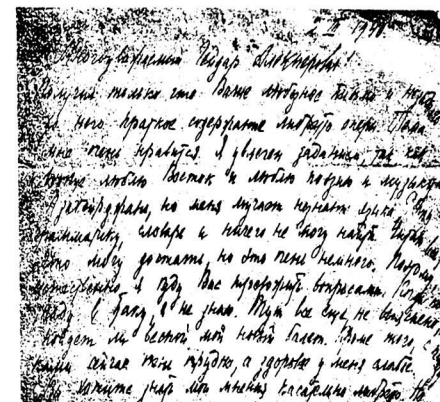 2 II 1940.
Многоуважаемый Гейдар Алекперович!
Получил только что Ваше любезное письмо и
из него краткое содержание либретто оперы. Тема
мне очень нравится и увлечен заданием, так как
очень люблю Восток и люблю поэзию и музыку
но меня мучает незнание языка.
грамматику, словаря и ничего не могу найти. Читаю
что могу достать, но это очень немного. Поэтому
естественно, я буду Вас вопросами. Когда
в Баку, я не знаю. Тут все еще не выяснено
пойдет ли весной мой новый балет. Кроме того, с
сейчас трудно, а здоровье у меня слабое.
Вы хотите знать мои мнения касательно либретто. Но